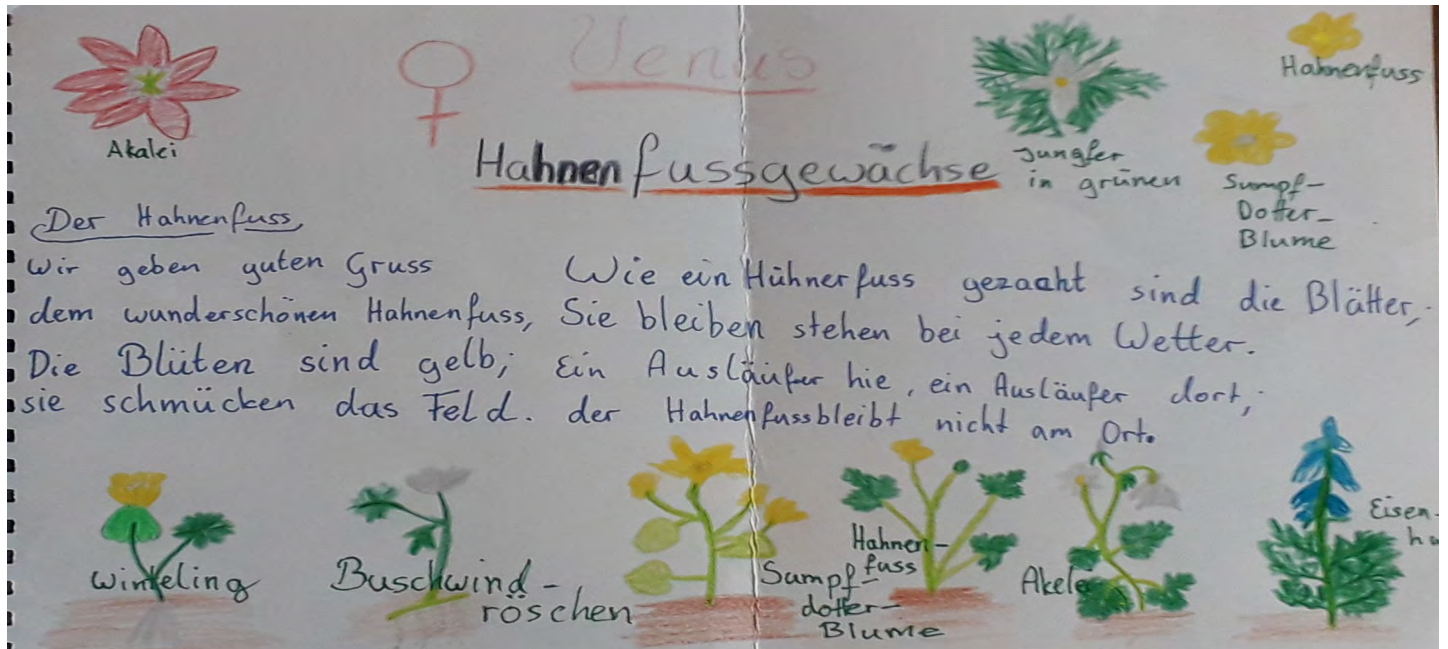 Venus
Akalei
Hahnenfussgewächse
Jungfer
in grünen
Hahnenfuss
Sumpf-
Dotter-
Blume
Der Hahnenfuss
Wir geben guten Gruss
dem wunderschönen Hahnenfuss,
Die Blüten sind gelb;
sie schmücken das Feld.
Wie ein Hühnerfuss gezackt sind die Blätter,
Sie bleiben stehen bei jedem Wetter.
Ein Ausläufer hie, ein Ausläufer dort,
der Hahnenfussbleibt nicht am Ort.
Winteling
Buschwind-
röschen
Sumpf-
dotter-
Blume
Hahnen-
fuss
Akelei
Eisen-